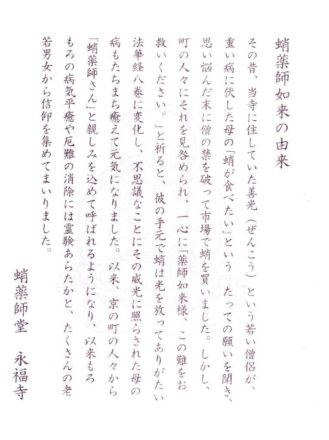 蛸薬師如来の由来
その昔、当寺に住していた善光（ぜんこう）という若い僧侶が、
重い病に伏した母の「蛸が食べたい」という たっての願いを聞き、
思い悩んだ末に僧の禁を破って市場で蛸を買いました。しかし、
町の人々にそれを見咎められ、一心に「薬師如来様、この難をお
救いください。」と祈ると、彼の手元で蛸は光を放ってありがたい
法華経八巻に変化し、不思議なことにその威光に照らされた母の
病もたちまち癒えて元気になりました。以来、京の町の人々から
「蛸薬師さん」と親しみを込めて呼ばれるようになり、以来もろ
もろの病気平癒や厄難の消除には霊験あらたかと、たくさんの老
若男女から信仰を集めてまいりました。
蛸薬師堂 永福寺